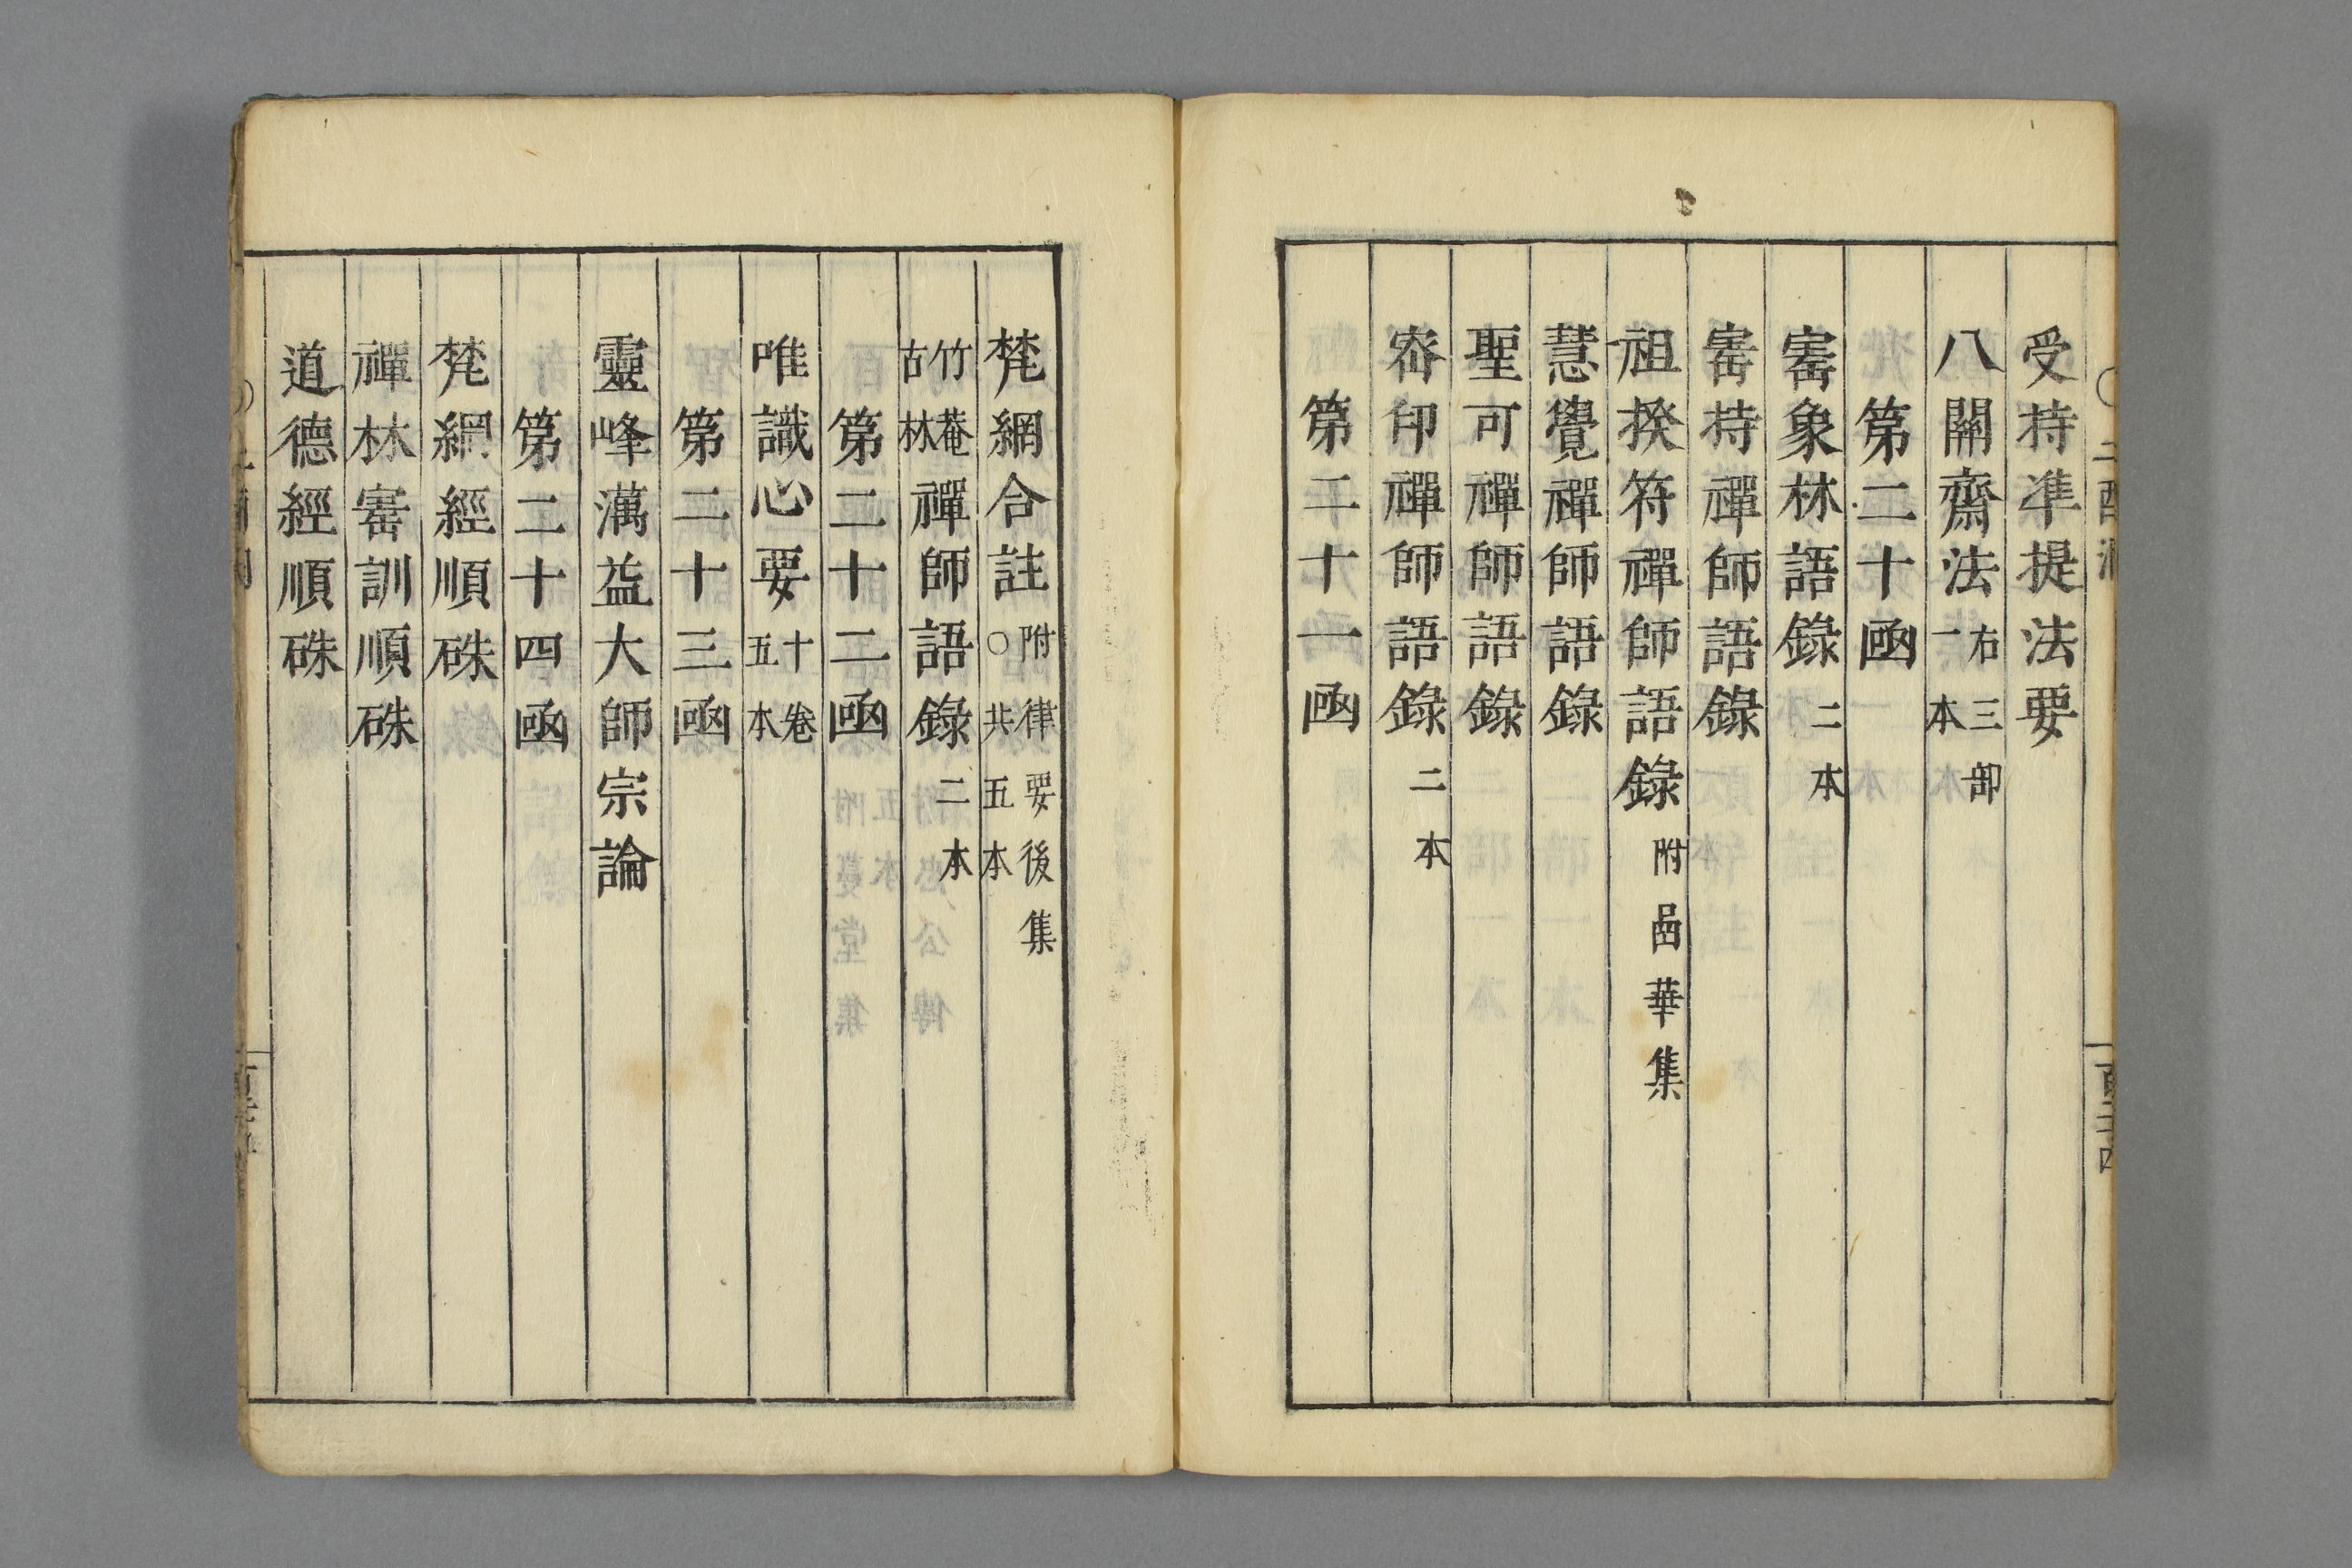 受持準提法要
八關齋法 右三部一本
第二十𭅺
寚象林語錄 二本
寚持禪師語錄
祖揆符禪師語錄 附嵒華集
慧覺禪師語錄
聖可禪師語錄
宻印禪師語錄 二本
第二十一凾
梵網合註 附律要後集○共五本
竹菴古林禪師語錄 二本
第二十二凾
唯識心要 十卷五本
第二十三凾
靈峰蕅益大師宗論
第二十四凾
梵網經順硃
禪林寚訓順硃
道德經順硃